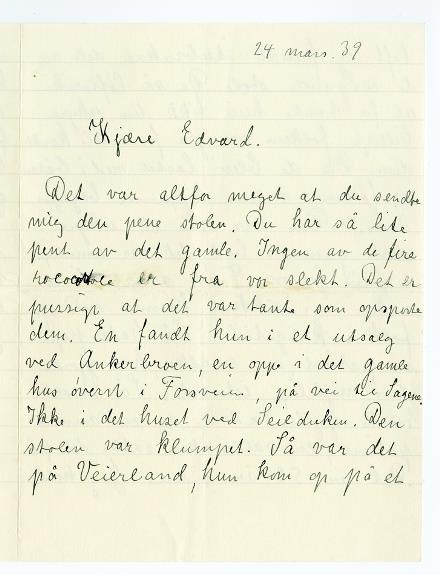 24 mars. 39
Kjære Edvard.
Det var altfor meget at du sendte
mig den pene stolen. Du har så lite
pent av det gamle. Ingen av de fire
er fra vor slekt. Det er
pussigt at det var tante som opsporte
dem. En fandt hun i et utsalg
ved Ankerbroen, en oppe i det gamle
hus øverst i på vei til Sagene.
Ikke i det huset ved Seilduken. Den
stolen var klumpet. Så var det
på Veierland, hun kom op på et